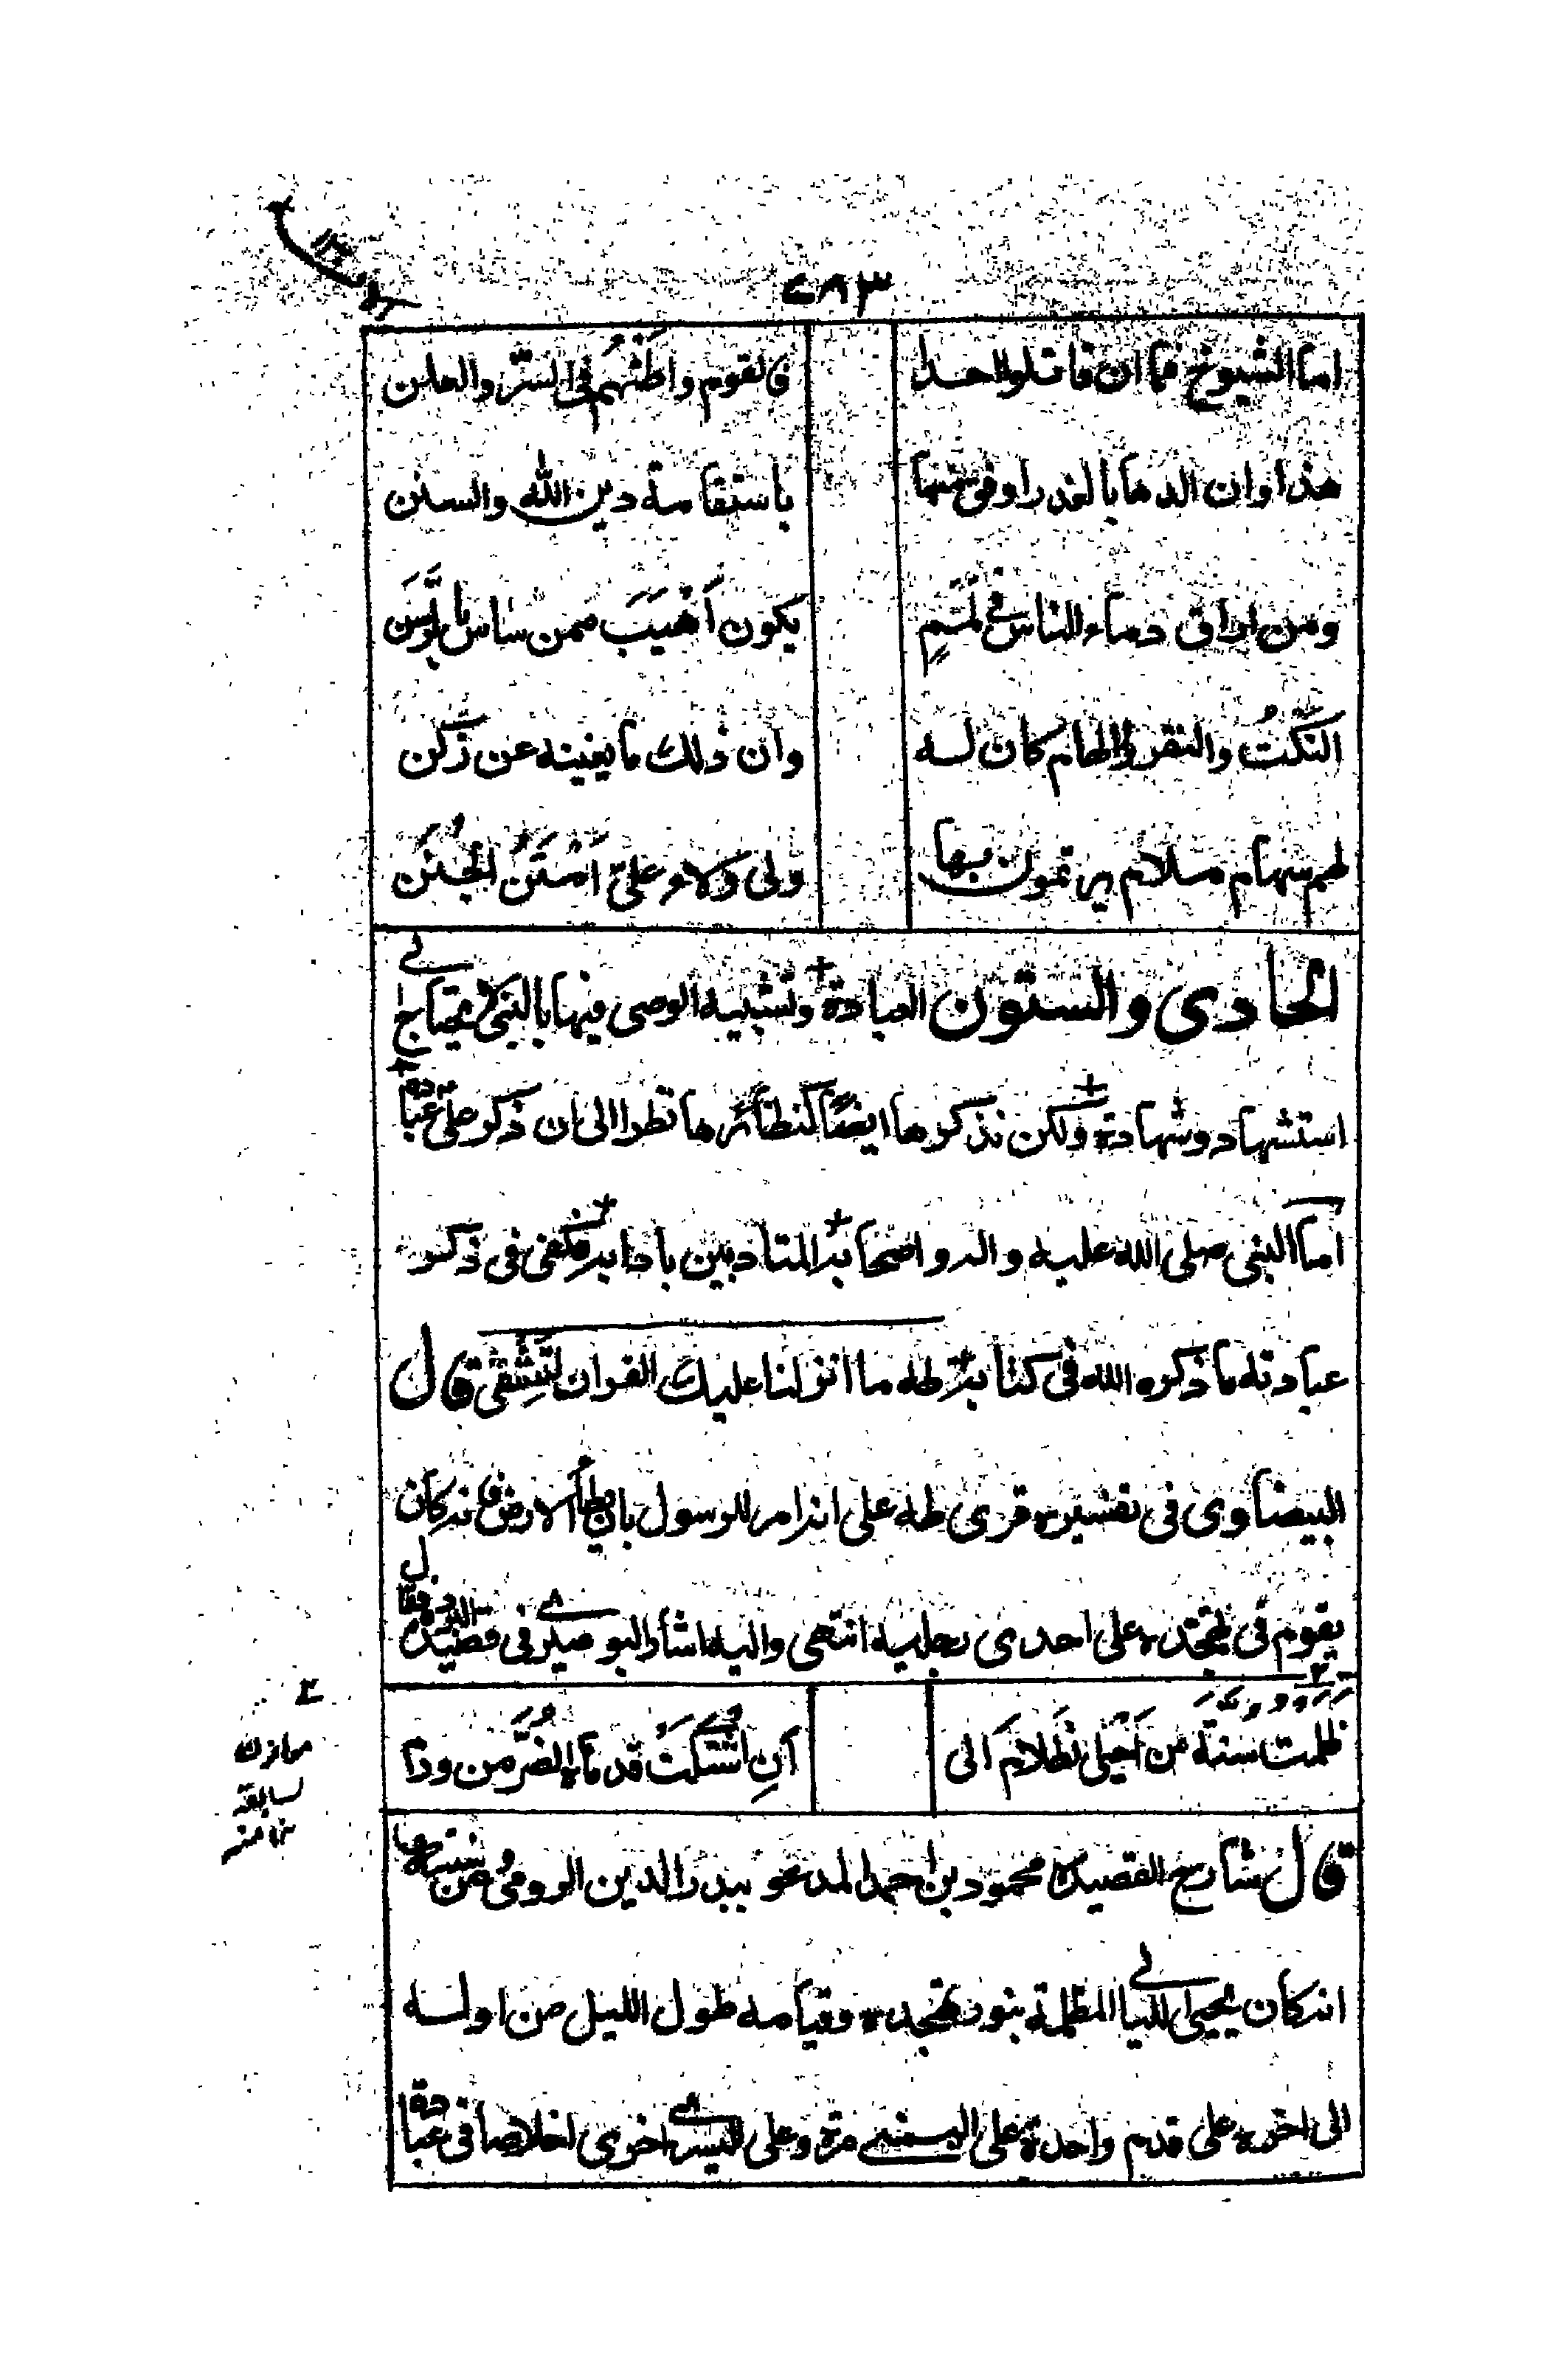 ٢٨٣
اما الشيوخ فما ان قاتلوا احدا
فالقوم واطئهم فى السرّ والعلن
هذا وان الدها بالغدر اوفى منهما
باستقامة دين الله والسنن
ومن اراق دماء الناس فى لَمَمٍ
يكون اَهْيَبَ ممن ساس
النكتُ والنقر والهام كان لسه
وان ذلك ما يغنيه عن زكن
لهم سهام سلام يرتمون بها
ولى ولاء علىّ اَسْتَنُ الجُنَن
الحادى والستون العبادة وتشبيه الوصى فيها بالنبى لا يحتاج الى
استشهاد وشهادة ولكن نذكرها ايضًا كنظائرها نظرا الى ان ذكر علىّ عبادة
اما النبى صلى الله عليه واله واصحابه المتادبين بادابه فكفى فى ذكر
عبادته ما ذكره الله فى كتابه طه ما انزلنا عليك القران لتشقى قال
البيضاوى فى تفسيره قرى طه على انه امر للرسول بان يطأ الارض فانه كان
يقوم فى تهجده على احدى رجليه انتهى واليه اشار البوصيرى فى قصيدته فقال
ظلمت سُنّة من اَحْيَى الظَلامَ الى
اَنِ اشْتَكَتْ قدماه الضُرَّ من ورم
قال شارح القصيدة محمود بن احمد المدعو ببدر الدين الرومى
انه كان يحيى الليالى المظلمة بنور تهجده وقيامه طول الليل من اوله
الى اخره على قدم واحدة على اليمنى مرة وعلى اليسرى اخرى اخلاصا فى عبادة